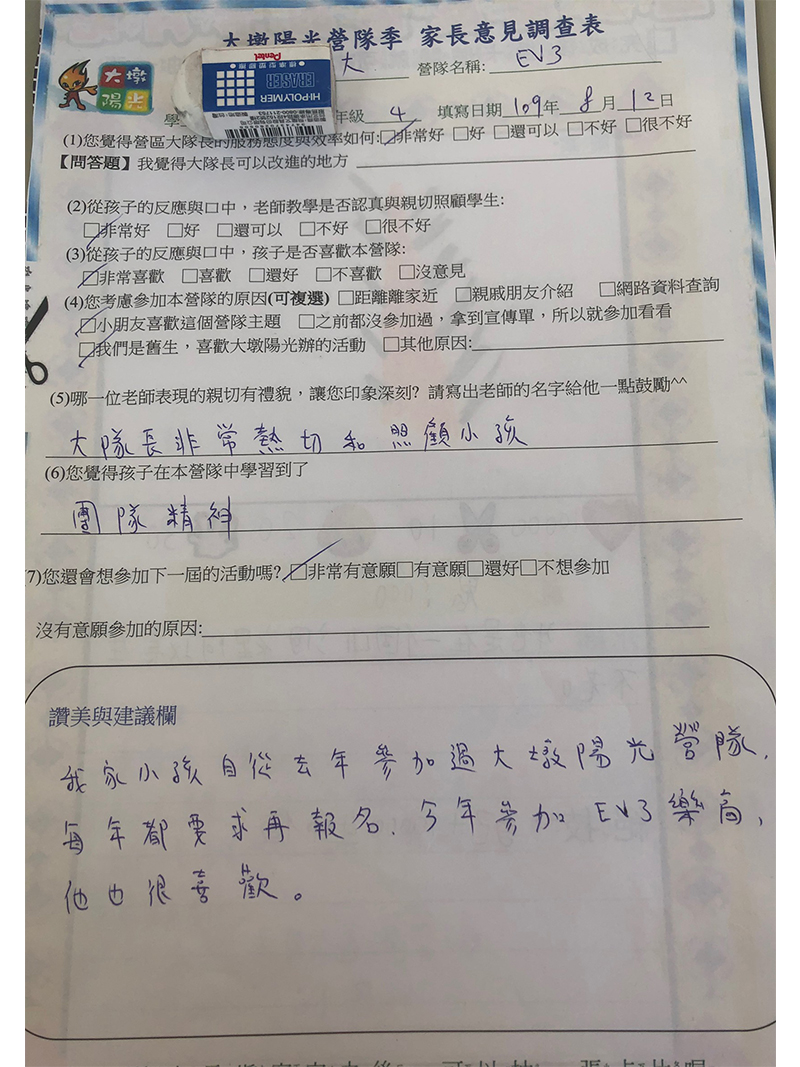 大墩陽光營隊季 家長意見調查表
大墩
陽光
大 營隊名稱: EV3
Pentel
標準型塑膠擦
HI-POLYMER
ERASER
學 年級 4 填寫日期 109年 8 月 12 日
(1)您覺得營區大隊長的服務態度與效率如何:☑非常好 □好 □還可以 □不好 □很不好
【問答題】我覺得大隊長可以改進的地方
(2)從孩子的反應與口中，老師教學是否認真與親切照顧學生:
☑非常好 □好 □還可以 □不好 □很不好
(3)從孩子的反應與口中，孩子是否喜歡本營隊:
☑非常喜歡 □喜歡 □還好 □不喜歡 □沒意見
(4)您考慮參加本營隊的原因(可複選) □距離離家近 □親戚朋友介紹 □網路資料查詢
☑小朋友喜歡這個營隊主題 □之前都沒參加過，拿到宣傳單，所以就參加看看
☑我們是舊生，喜歡大墩陽光辦的活動 □其他原因:
(5)哪一位老師表現的親切有禮貌，讓您印象深刻? 請寫出老師的名字給他一點鼓勵^^
大隊長非常熱切和照顧小孩
(6)您覺得孩子在本營隊中學習到了
團隊精神
7)您還會想參加下一屆的活動嗎? ☑非常有意願□有意願□還好□不想參加
沒有意願參加的原因:
讚美與建議欄
我家小孩自從去年參加過大墩陽光營隊,
每年都要求再報名. 今年參加 EV3 樂高,
他也很喜歡。